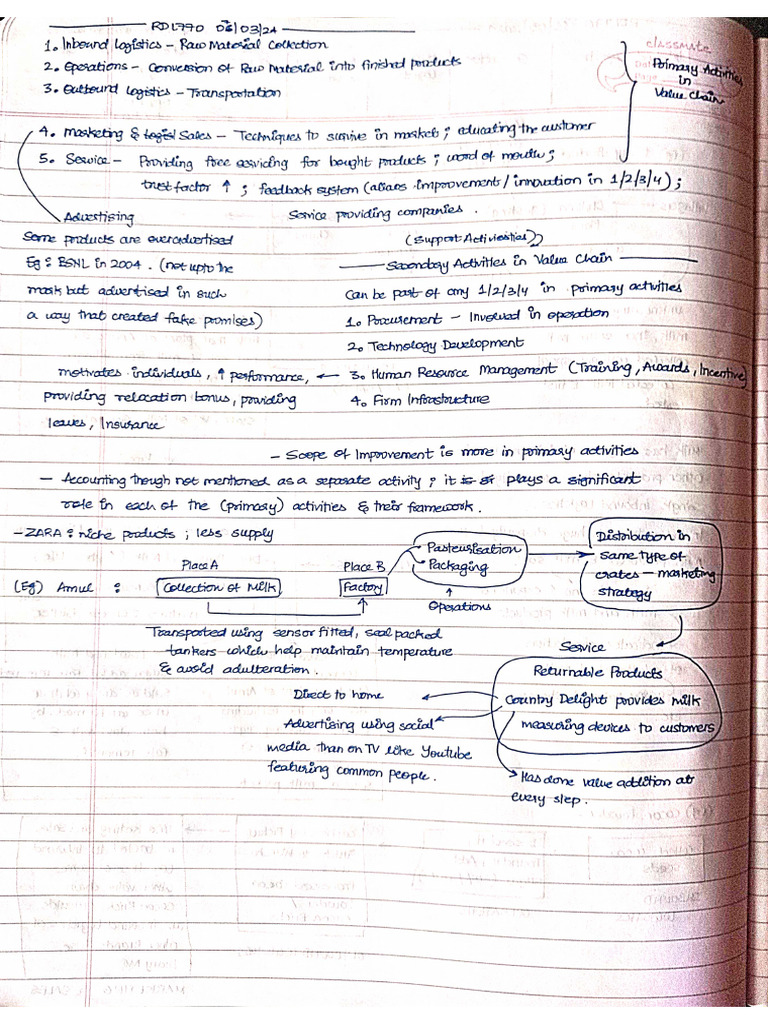 RD1770 06/03/24
classmate
1. Inbound Logistics – Raw Material Collection
2. Operations – Conversion of Raw Material into finished products
3. Outbound Logistics – Transportation
Primary Activities
in
Value Chain
4. Marketing & Sales – Techniques to survive in market ; educating the customer
5. Service – Providing free servicing for bought products ; word of mouth ;
trust factor ↑ ; feedback system (allows improvement / innovation in 1/2/3/4) ;
Service providing companies .
Advertising
Some products are overadvertised
Eg : BSNL in 2004 . (not upto the
mark but advertised in such
a way that created fake promises)
(Support Activiesties)
Secondary Activities in Value Chain
Can be part of any 1/2/3/4 in primary activities
1. Procurement – Involved in operation
2. Technology Development
3. Human Resource Management (Training, Awards, Incentive)
4. Firm Infrastructure
motivates individuals, ↑ performance, ←
providing relocation bonus, providing
leaves, Insurance
– Scope of Improvement is more in primary activities
– Accounting though not mentioned as a separate activity ; it plays a significant
role in each of the (primary) activities & their framework .
– ZARA : niche products ; less supply
(Eg) Amul :
Place A
Collection of Milk
Place B
Factory
Pasteurisation
Packaging
Operations
Distribution in
same type of
crates – marketing
strategy
Transported using sensor fitted, seal packed
tankers which help maintain temperature
& avoid adulteration .
Service
Returnable Products
Country Delight provides milk
measuring devices to customers
Direct to home
Advertising using social
media than on TV like Youtube
featuring common people .
Has done value addition at
every step .